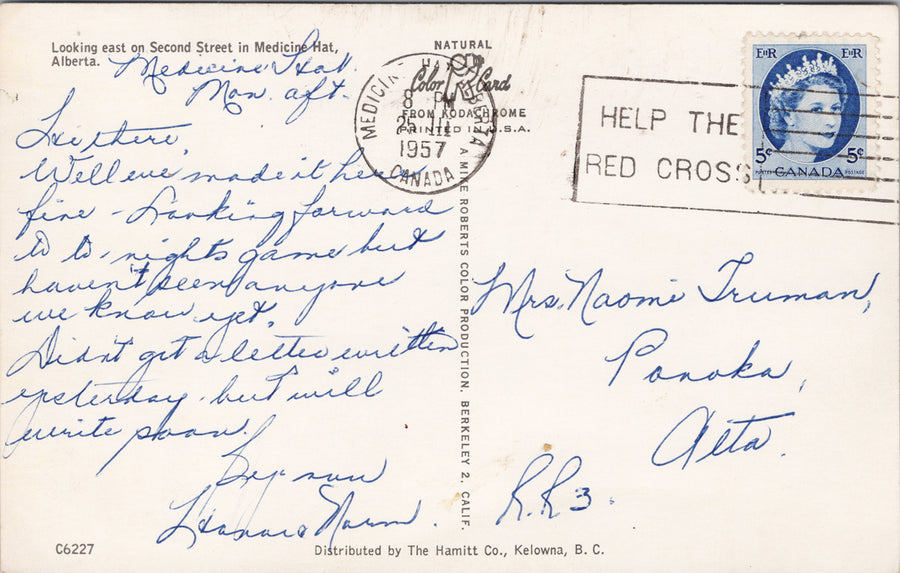 Looking east on Second Street in Medicine Hat,
Alberta.
Medicine Hat.
Mon. aft.
Hi there,
Well we made it here
fine - Looking forward
to to-nights game but
haven't seen anyone
we know yet.
Didn't get a letter written
yesterday but will
write soon.
Bye now
Norm.
C6227
NATURAL
Color Card
FROM KODACHROME
PRINTED IN U.S.A.
A MIKE ROBERTS COLOR PRODUCTION, BERKELEY 2, CALIF.
Distributed by The Hamitt Co., Kelowna, B. C.
8 PM
25 III
1957
CANADA
HELP THE
RED CROSS
EIIR EIIR
5¢ 5¢
POSTES CANADA POSTAGE
Mrs. Naomi Truman,
Ponoka,
Alta.
R.R 3.